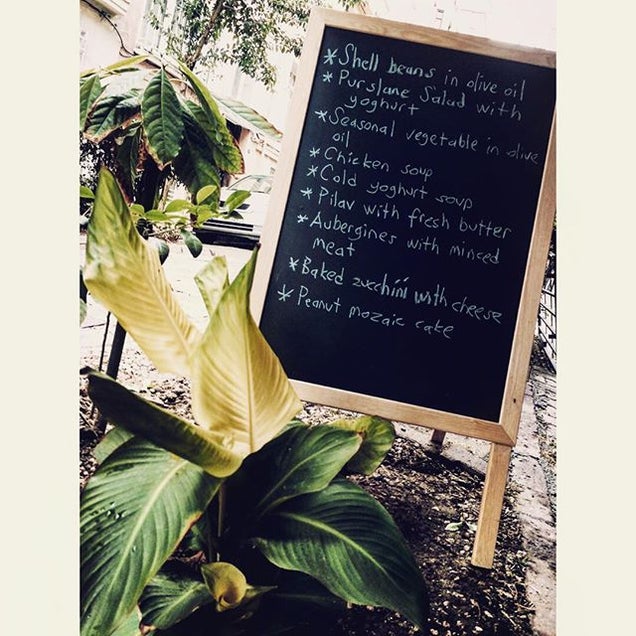 * Shell beans in olive oil
* Purslane Salad with
yoghurt
* Seasonal vegetable in olive
oil
* Chicken soup
* Cold yoghurt soup
* Pilav with fresh butter
* Aubergines with minced
meat
* Baked zucchini with cheese
* Peanut mozaic cake